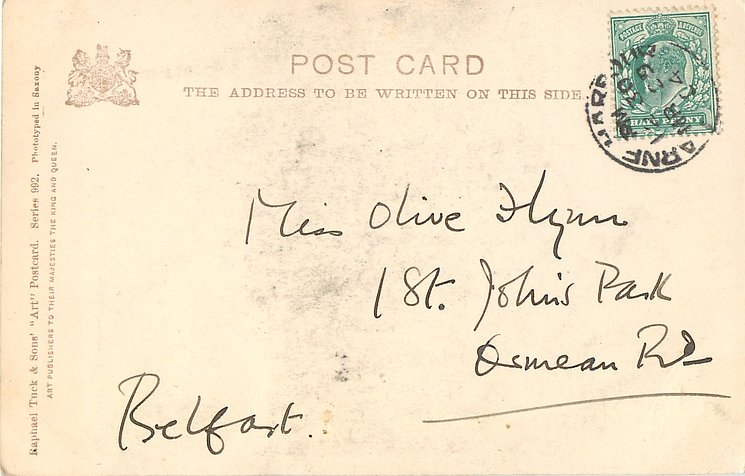 POST CARD
THE ADDRESS TO BE WRITTEN ON THIS SIDE.
POSTAGE REVENUE
HALF PENNY
Miss Olive Flynn
1 St. John's Park
Ormeau Rd
Belfast.
Raphael Tuck & Sons' "Art" Postcard. Series 992. Phototyped in Saxony
ART PUBLISHERS TO THEIR MAJESTIES THE KING AND QUEEN.